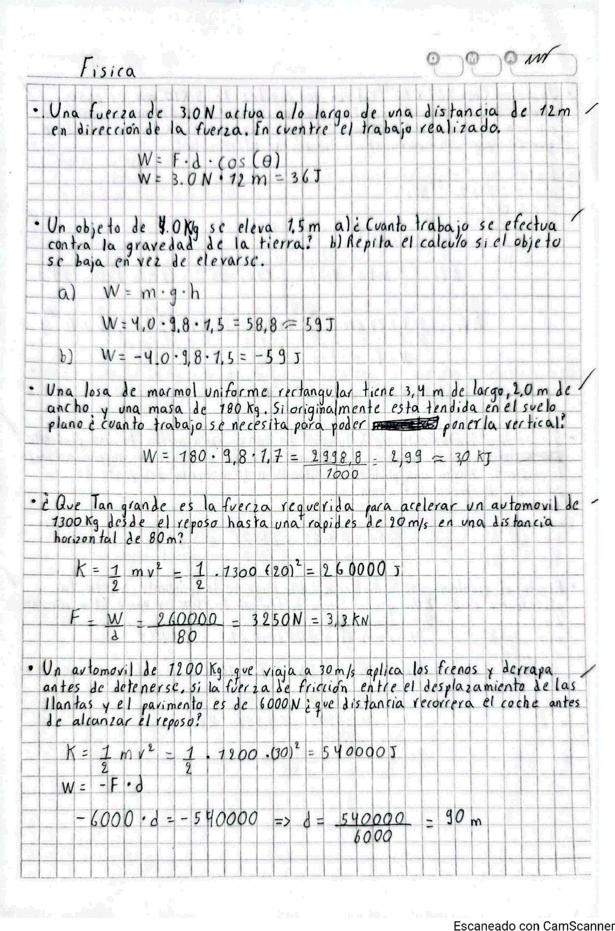 Fisica
D M A
• Una fuerza de 3.0N actua a lo largo de una distancia de 12m
en dirección de la fuerza. En cuentre el trabajo realizado.
W = F·d·cos(θ)
W = 3.0N·12m = 36J
• Un objeto de 4.0Kg se eleva 1,5m a)¿Cuanto trabajo se efectua
contra la gravedad de la tierra? b) Repita el calculo si el objeto
se baja en vez de elevarse.
a) W = m·g·h
W = 4,0·9,8·1,5 = 58,8 ≈ 59J
b) W = -4.0·9,8·1,5 = -59J
• Una losa de marmol uniforme rectangular tiene 3,4 m de largo, 2,0m de
ancho y una masa de 180Kg. Si originalmente esta tendida en el suelo
plano ¿cuanto trabajo se necesita para poder ponerla vertical?
W = 180·9,8·1,7 = 2998,8/1000 = 2,99 ≈ 3,0 KJ
• ¿Que Tan grande es la fuerza requerida para acelerar un automovil de
1300Kg desde el reposo hasta una rapides de 20m/s en una distancia
horizontal de 80m?
K = 1/2 mv² = 1/2 . 1300 (20)² = 260000 J
F = W/d = 260000/80 = 3250N = 3,3KN
• Un automovil de 1200Kg que viaja a 30m/s aplica los frenos y derrapa
antes de detenerse, si la fuerza de fricción entre el desplazamiento de las
llantas y el pavimento es de 6000N ¿que distancia recorrera el coche antes
de alcanzar el reposo?
K = 1/2 mv² = 1/2 . 1200 .(30)² = 540000J
W = -F·d
-6000·d = -540000 => d = 540000/6000 = 90 m
Escaneado con CamScanner